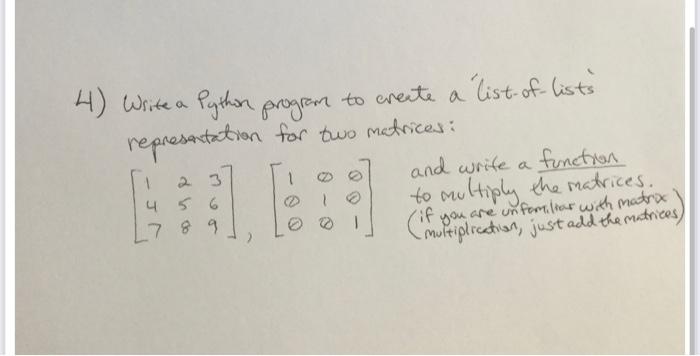 4) Write a Python program to create a "list-of-lists"
representation for two matrices:
[1 2 3
4 5 6
7 8 9], [1 0 0
0 1 0
0 0 1]
and write a function
to multiply the matrices.
(if you are unfamiliar with matrix
multiplication, just add the matrices)